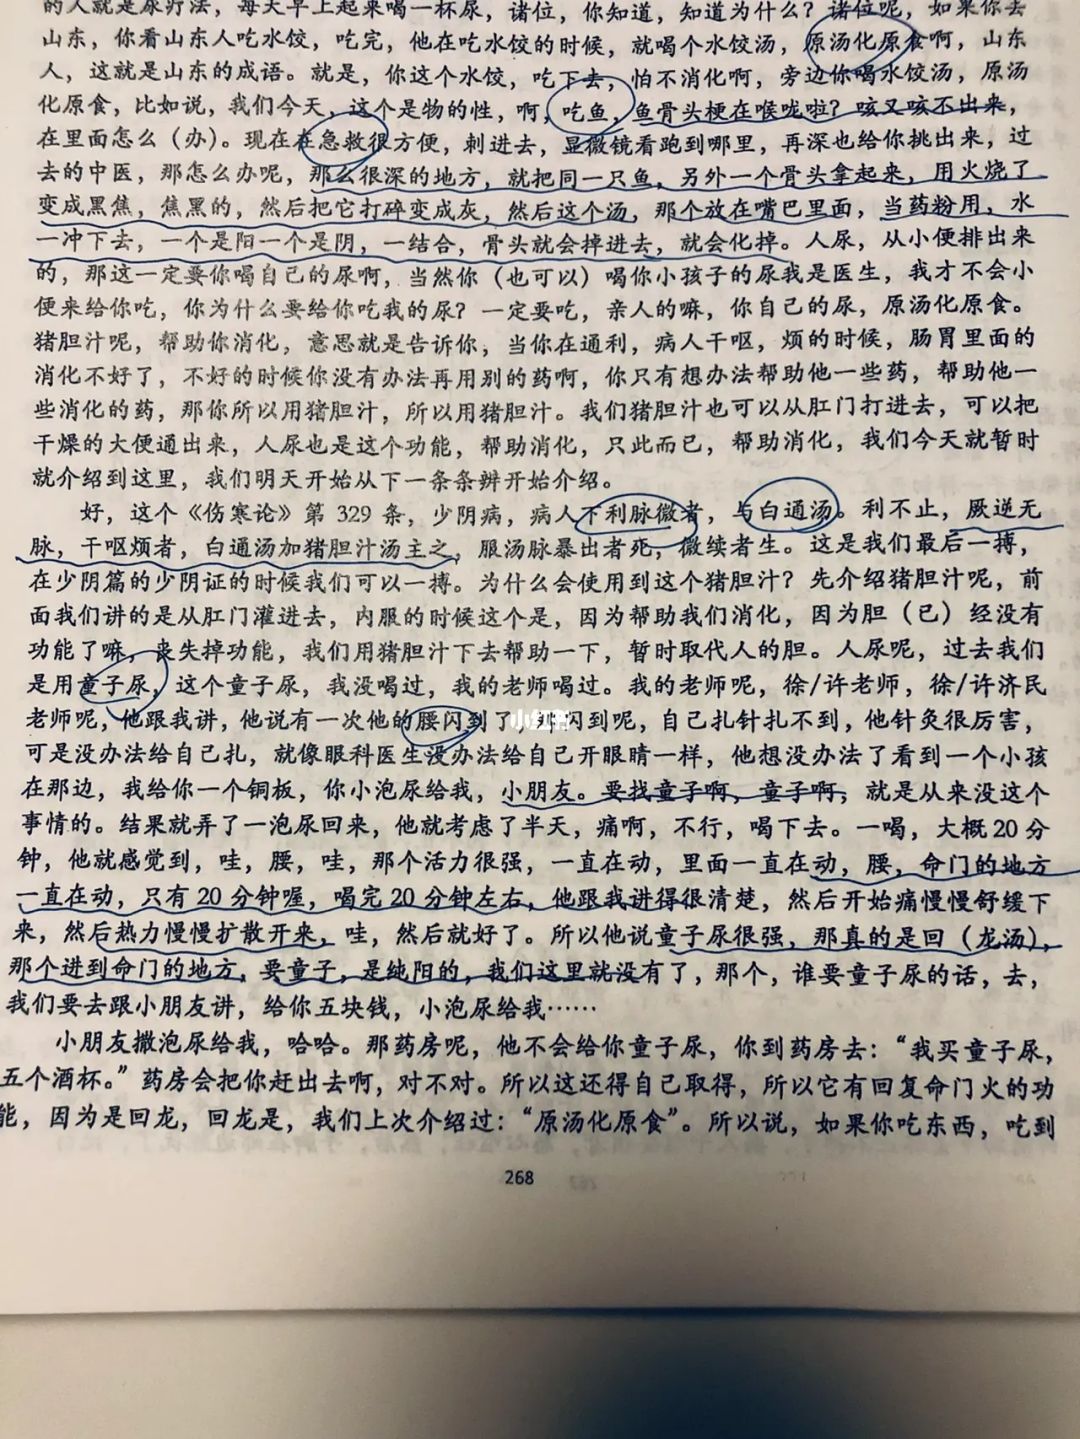 的人就是尿疗法，每天早上起来喝一杯尿，诸位，你知道，知道为什么？诸位呢，如果你去
山东，你看山东人吃水饺，吃完，他在吃水饺的时候，就喝个水饺汤，原汤化原食啊，山东
人，这就是山东的成语。就是，你这个水饺，吃下去，怕不消化啊，旁边你喝水饺汤，原汤
化原食，比如说，我们今天，这个是物的性，啊，吃鱼，鱼骨头梗在喉咙啦？咳又咳不出来，
在里面怎么（办）。现在在急救很方便，刺进去，显微镜看跑到哪里，再深也给你挑出来，过
去的中医，那怎么办呢，那么很深的地方，就把同一只鱼，另外一个骨头拿起来，用火烧了
变成黑焦，焦黑的，然后把它打碎变成灰，然后这个汤，那个放在嘴巴里面，当药粉用，水
一冲下去，一个是阳一个是阴，一结合，骨头就会掉进去，就会化掉。人尿，从小便排出来
的，那这一定要你喝自己的尿啊，当然你（也可以）喝你小孩子的尿我是医生，我才不会小
便来给你吃，你为什么要给你吃我的尿？一定要吃，亲人的嘛，你自己的尿，原汤化原食。
猪胆汁呢，帮助你消化，意思就是告诉你，当你在通利，病人干呕，烦的时候，肠胃里面的
消化不好了，不好的时候你没有办法再用别的药啊，你只有想办法帮助他一些药，帮助他一
些消化的药，那你所以用猪胆汁，所以用猪胆汁。我们猪胆汁也可以从肛门打进去，可以把
干燥的大便通出来，人尿也是这个功能，帮助消化，只此而已，帮助消化，我们今天就暂时
就介绍到这里，我们明天开始从下一条条辨开始介绍。
好，这个《伤寒论》第 329 条，少阴病，病人下利脉微者，与白通汤。利不止，厥逆无
脉，干呕烦者，白通汤加猪胆汁汤主之，服汤脉暴出者死，微续者生。这是我们最后一搏，
在少阴篇的少阴证的时候我们可以一搏。为什么会使用到这个猪胆汁？先介绍猪胆汁呢，前
面我们讲的是从肛门灌进去，内服的时候这个是，因为帮助我们消化，因为胆（已）经没有
功能了嘛，丧失掉功能，我们用猪胆汁下去帮助一下，暂时取代人的胆。人尿呢，过去我们
是用童子尿，这个童子尿，我没喝过，我的老师喝过。我的老师呢，徐/许老师，徐/许济民
老师呢，他跟我讲，他说有一次他的腰闪到了，闪到呢，自己扎针扎不到，他针灸很厉害，
可是没办法给自己扎，就像眼科医生没办法给自己开眼睛一样，他想没办法了看到一个小孩
在那边，我给你一个铜板，你小泡尿给我，小朋友。要找童子啊，童子啊，就是从来没这个
事情的。结果就弄了一泡尿回来，他就考虑了半天，痛啊，不行，喝下去。一喝，大概 20 分
钟，他就感觉到，哇，腰，哇，那个活力很强，一直在动，里面一直在动，腰，命门的地方
一直在动，只有 20 分钟喔，喝完 20 分钟左右，他跟我讲得很清楚，然后开始痛慢慢舒缓下
来，然后热力慢慢扩散开来，哇，然后就好了。所以他说童子尿很强，那真的是回（龙汤），
那个进到命门的地方，要童子，是纯阳的，我们这里就没有了，那个，谁要童子尿的话，去，
我们要去跟小朋友讲，给你五块钱，小泡尿给我……
小朋友撒泡尿给我，哈哈。那药房呢，他不会给你童子尿，你到药房去：“我买童子尿，
五个酒杯。”药房会把你赶出去啊，对不对。所以这还得自己取得，所以它有回复命门火的功
能，因为是回龙，回龙是，我们上次介绍过：“原汤化原食”。所以说，如果你吃东西，吃到
268
小红书